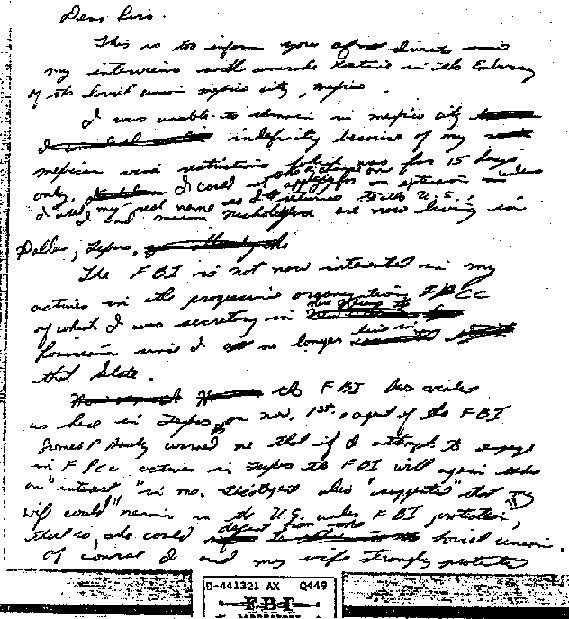 Dear Sirs.
This is to inform you of
my interviews with Comrade Kostine in the Embassy
of the Soviet Union Mexico City, Mexico.
I was unable to remain in Mexico City
indefinitly because of my
Mexican visa restrictions which was for 15 days
only. I could not apply for an extension unless
I used my real name so I returned to the U.S.
I and Marina Nicholeyeva are now living in
Dallas, Texas.
The FBI is not now interested in my
activities in the progressive organization FPCC
of which I was secretary in New Orleans,
Louisiana since I no longer live in
that state.
the FBI has visited
us here in Texas on Nov. 1st. agent of the FBI
James P. Hasty warned me that if I attempt to engage
in FPCC activities in Texas the FBI will again take
an "interest" in me. This agent also "suggested" that my
wife could remain in the U.S. under FBI protection,
that is, she could defect from the Soviet Union.
Of course I and my wife strongly protested
D-441321 AX Q449
FBI
LABORATORY